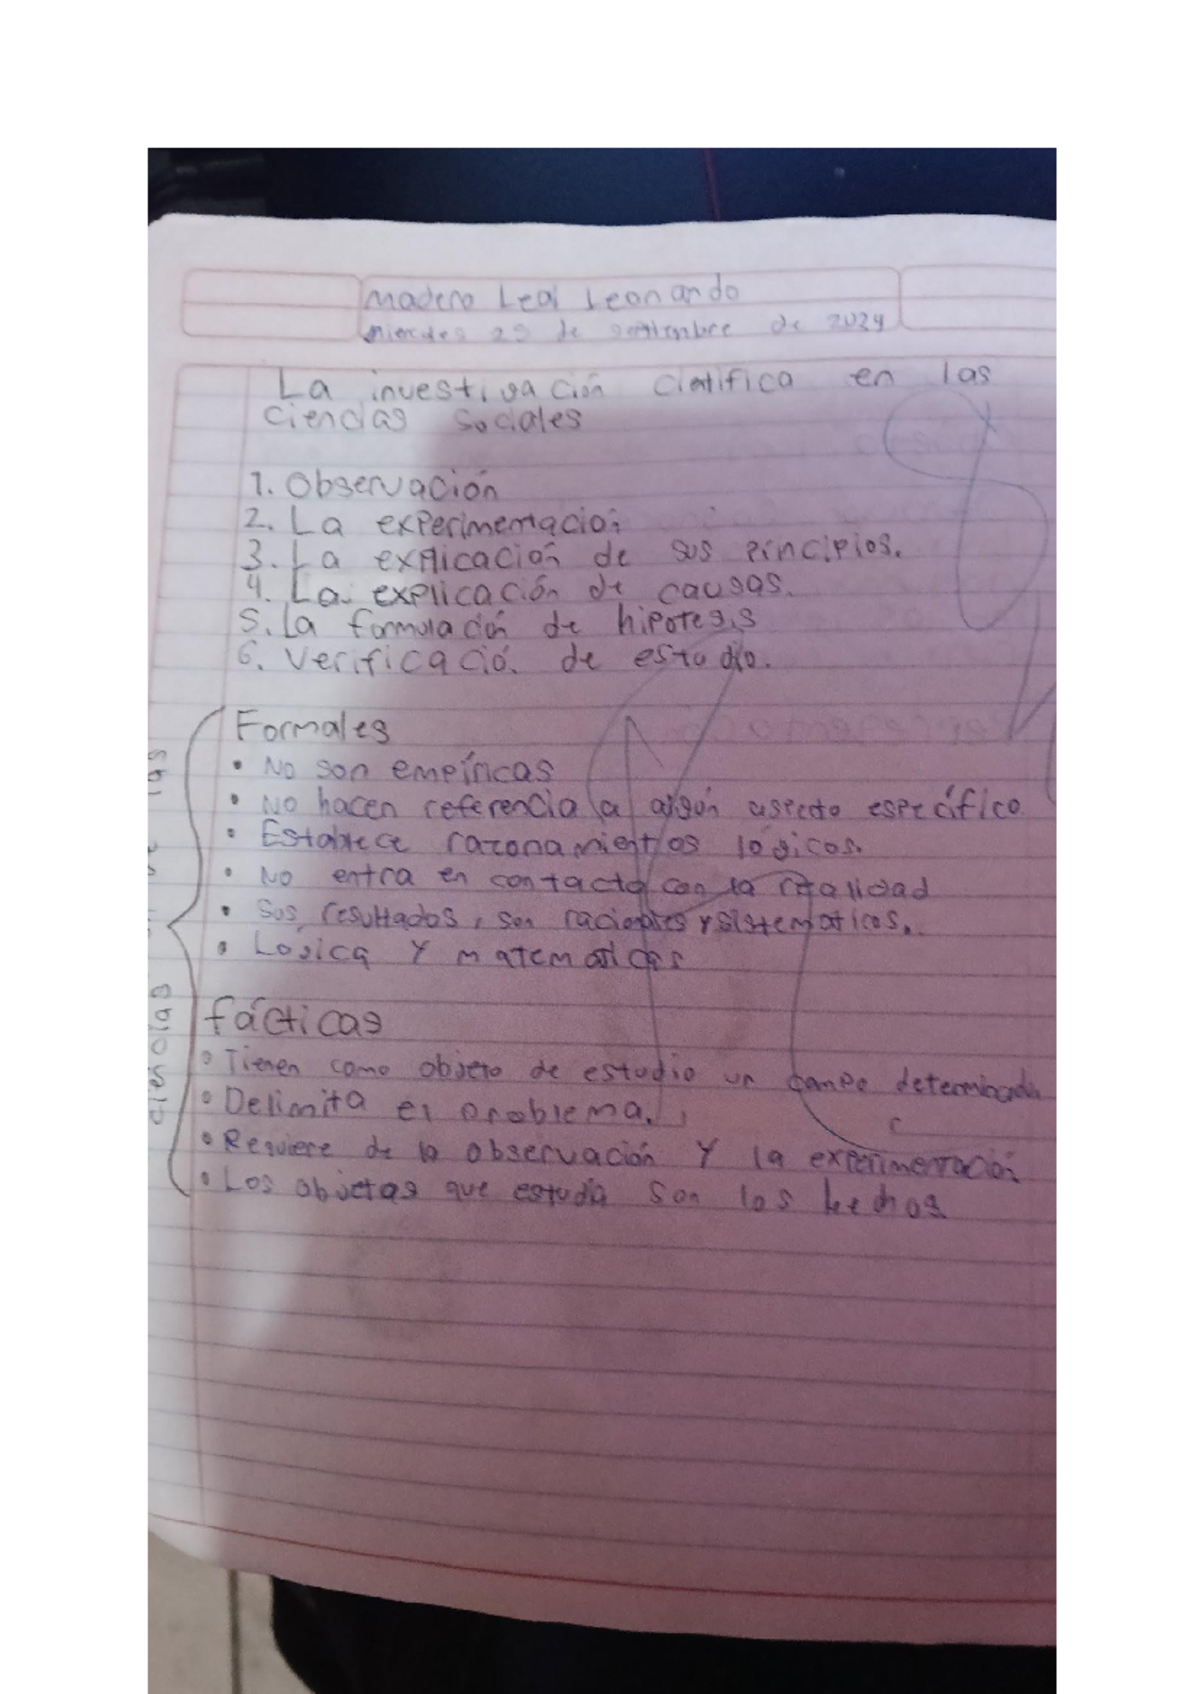 Madero Leal Leonardo
miercoles 25 de septiembre de 2024
La investigación cientifica en las
ciencias sociales
1. Observación
2. La experimentacion
3. La explicación de sus principios.
4. La explicación de causas.
5. La formulación de hipotesis
6. Verificació. de estudio.
Formales
• No son empíricas
• No hacen referencia a algún aspecto específico
• Establece razonamientos lógicos.
• No entra en contacto con la realidad
• Sus resultados, son racionales y sistematicos.
• Logica y matematicas
fácticas
• Tienen como objeto de estudio un campo determinado
• Delimita el problema.
• Requiere de la observación y la experimentación
• Los objetos que estudia son los hechos.
ciencias